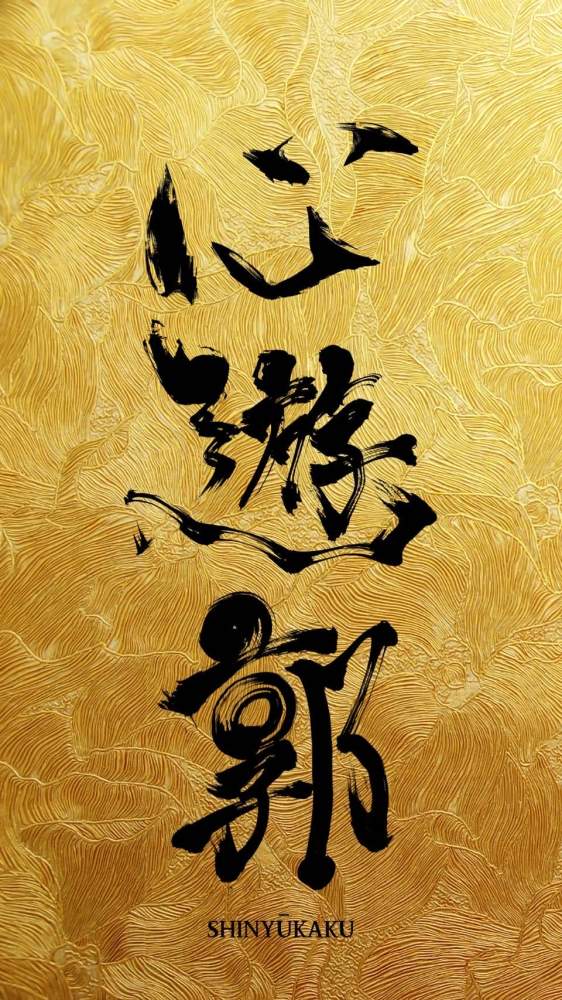 心
遊
郭
SHINYŪKAKU